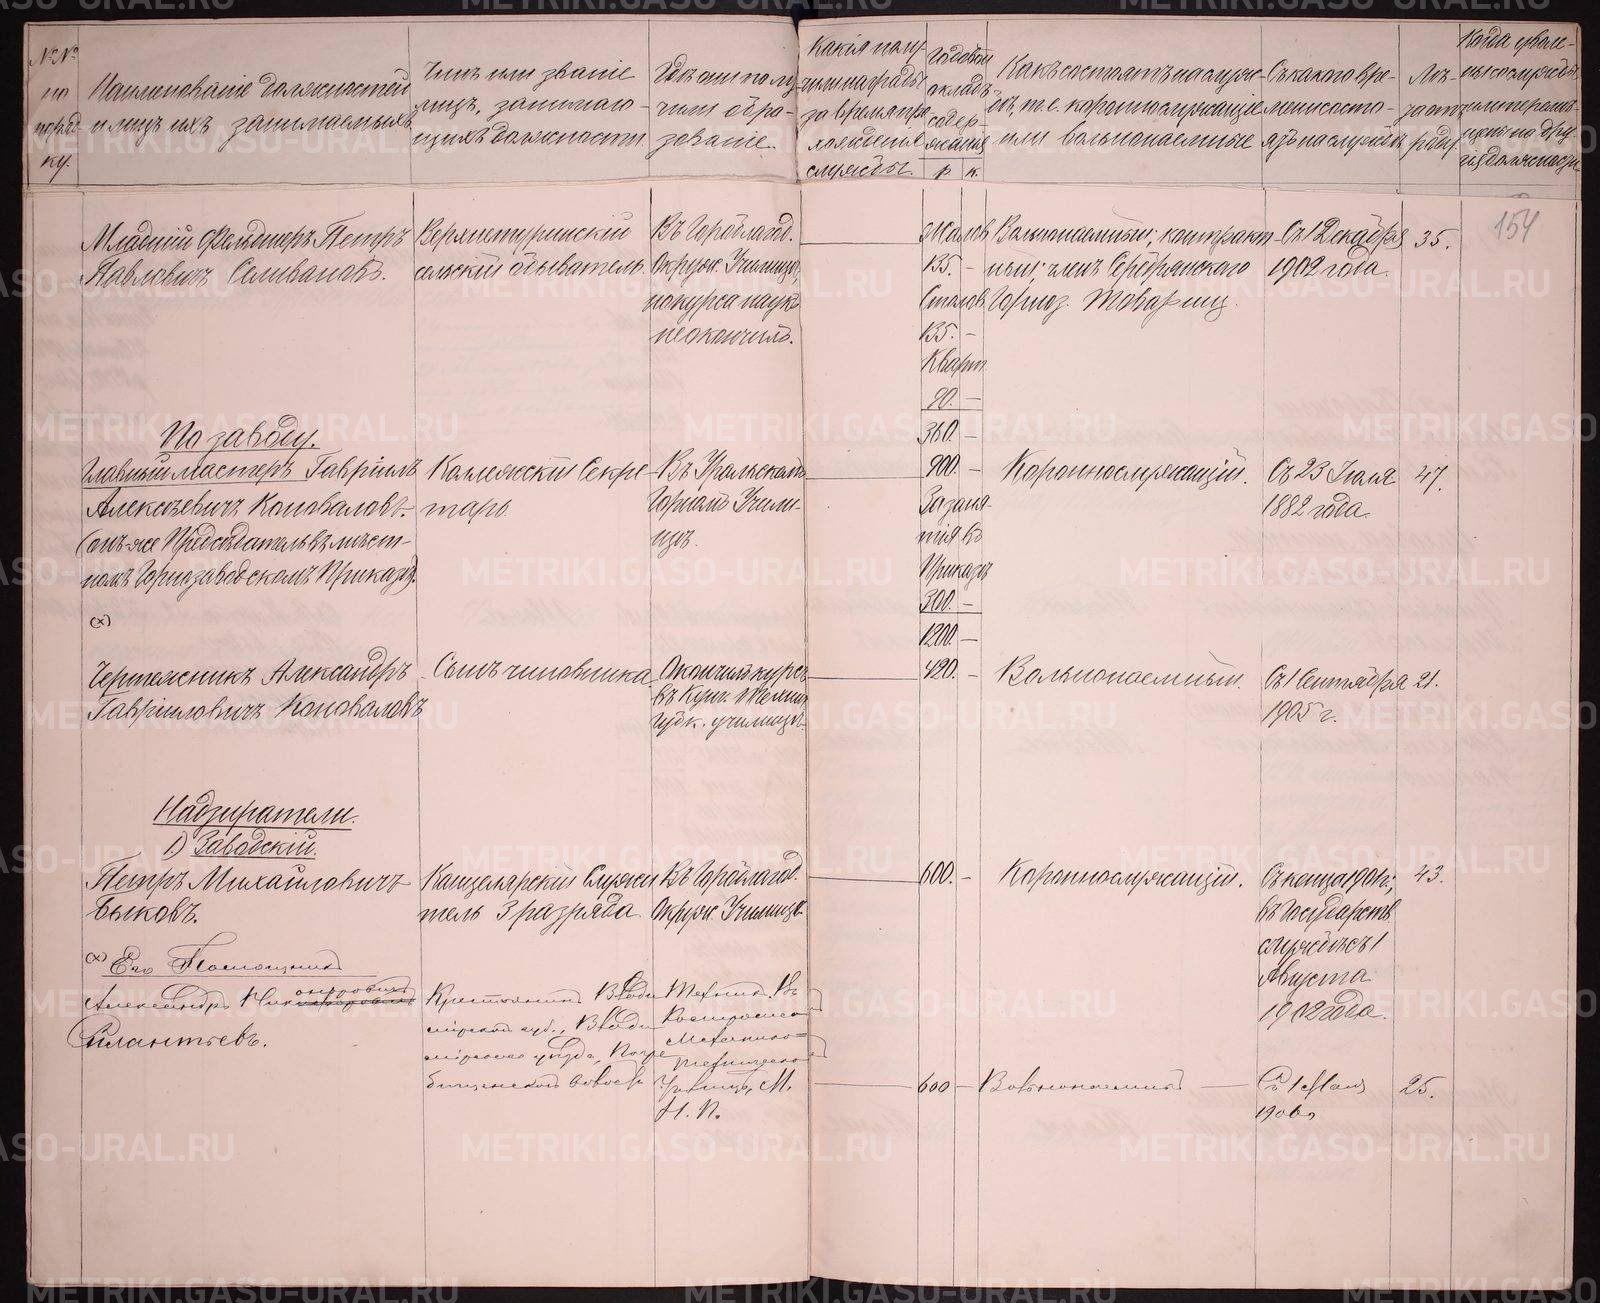 №№ по поряд ку.
Наименованіе должностей и лицъ ихъ занимаемыхъ
Чинъ или званіе лицъ, занимаю- щихъ должности
Гдѣ они полу- чили обра- зованіе.
Какія полу- чили награды за время про- хожденія службы.
Годовой окладъ содер- жанія р к.
Какъ состоятъ на служ- бѣ, т.е. короннослужащіе или вольнонаемные
Съ какого вре- мени состо- ятъ на службѣ
Лѣ- та отъ роду
Когда уволе- ны со службы
154
Младшій Фельдшеръ Петръ
Павловичъ Селивановъ.
Верхнетуринскій
сельскій обыватель.
Въ Гороблагод.
Окруж. Училищѣ,
но курса наукъ
не окончилъ.
Жалов
135. –
Столов
135. –
Кварт
90. –
360. –
Вольнонаемный, контракт-
ный; членъ Серебрянскаго
Горноз. Товарищ.
Съ 1 Декабря
1902 года.
35.
По заводу.
Главный мастеръ Гавріилъ
Алексѣевичъ Коноваловъ.
(онъ же Предсѣдатель въ мѣст-
номъ Горнозаводскомъ Приказѣ).
(х)
Коллежскій Секре-
тарь.
Въ Уральскомъ
Горномъ Учили-
щѣ.
900. –
За заня-
тія въ
Приказѣ
300. –
1200. –
Короннослужащій.
Съ 23 Іюля
1882 года.
47.
Чертежникъ Александръ
Гавріиловичъ Коноваловъ
Сынъ чиновника
Окончилъ курсъ
въ
училищѣ.
420. –
Вольнонаемный.
Съ 1 Сентября
1905 г.
21.
Надзиратели.
1) Заводскій.
Петръ Михайловичъ
Быковъ.
Канцелярскій Служи
тель 3 разряда.
Въ Гороблагод.
Окруж. Училищѣ.
600. –
Короннослужащій.
Съ конца 1901 г.,
въ Государств.
службѣ съ 1
Августа
1902 года.
43.
(х) Его Помощникъ
Александръ
Силантьевъ.
Крестьянинъ Влади
мірской губ., Влади
мірскаго уѣзда,
волости
Техникъ. Въ
Костромско
Механико-
техническо
Училищѣ, М.
Н. П.
600 –
Вольнонаемный
Съ 1 Мая
1906
25.
METRIKI.GASO-URAL.RU